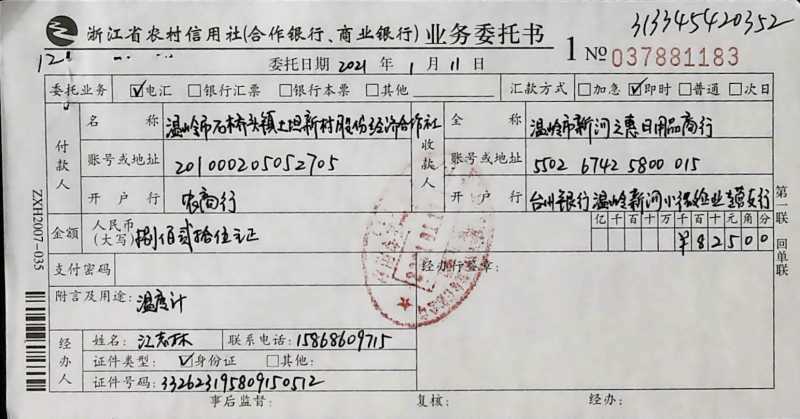 313345420352
浙江省农村信用社(合作银行、商业银行)业务委托书
1 № 037881183
委托日期 2021 年 1 月 11 日
委托业务 ☑电汇 □银行汇票 □银行本票 □其他 汇款方式 □加急 ☑即时 □普通 □次日
付款人 名称 温岭市石桥头镇上坦新村股份经济合作社
账号或地址 201000205052705
开户行 农商行
收款人 全称 温岭市新河之惠日用品商行
账号或地址 5502 6742 5800 015
开户行 台州银行温岭新河小微企业专营支行
金额 人民币(大写) 捌佰贰拾伍元正
亿千百十万千百十元角分
¥82500
支付密码
经办行签章:
附言及用途: 温度计
经办人 姓名: 江志林 联系电话: 15868609715
证件类型: ☑身份证 □其他:
证件号码: 332623195809150512
事后监督: 复核: 经办:
ZXH2007-035
第一联 回单联